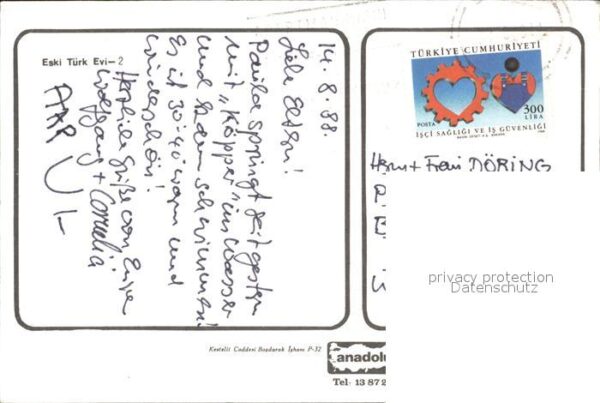 Eski Türk Evi—2
14.8.88.
Liebe Eltern!
Paula springt seit gestern
mit "Köpper" ins Wasser
und kann schwimmen!
Es ist 30-40 warm und
wunderschön!
Herzliche Grüße von Euren
Wolfgang + Cornelia
TÜRKİYE CUMHURİYETİ
POSTA
300
LİRA
İŞÇİ SAĞLIĞI VE İŞ GÜVENLİĞİ
Herrn + Frau DÖRING
privacy protection
Datenschutz
Kestelli Caddesi Bozdarak İşhanı P-32
anadolu
Tel: 13 87 2